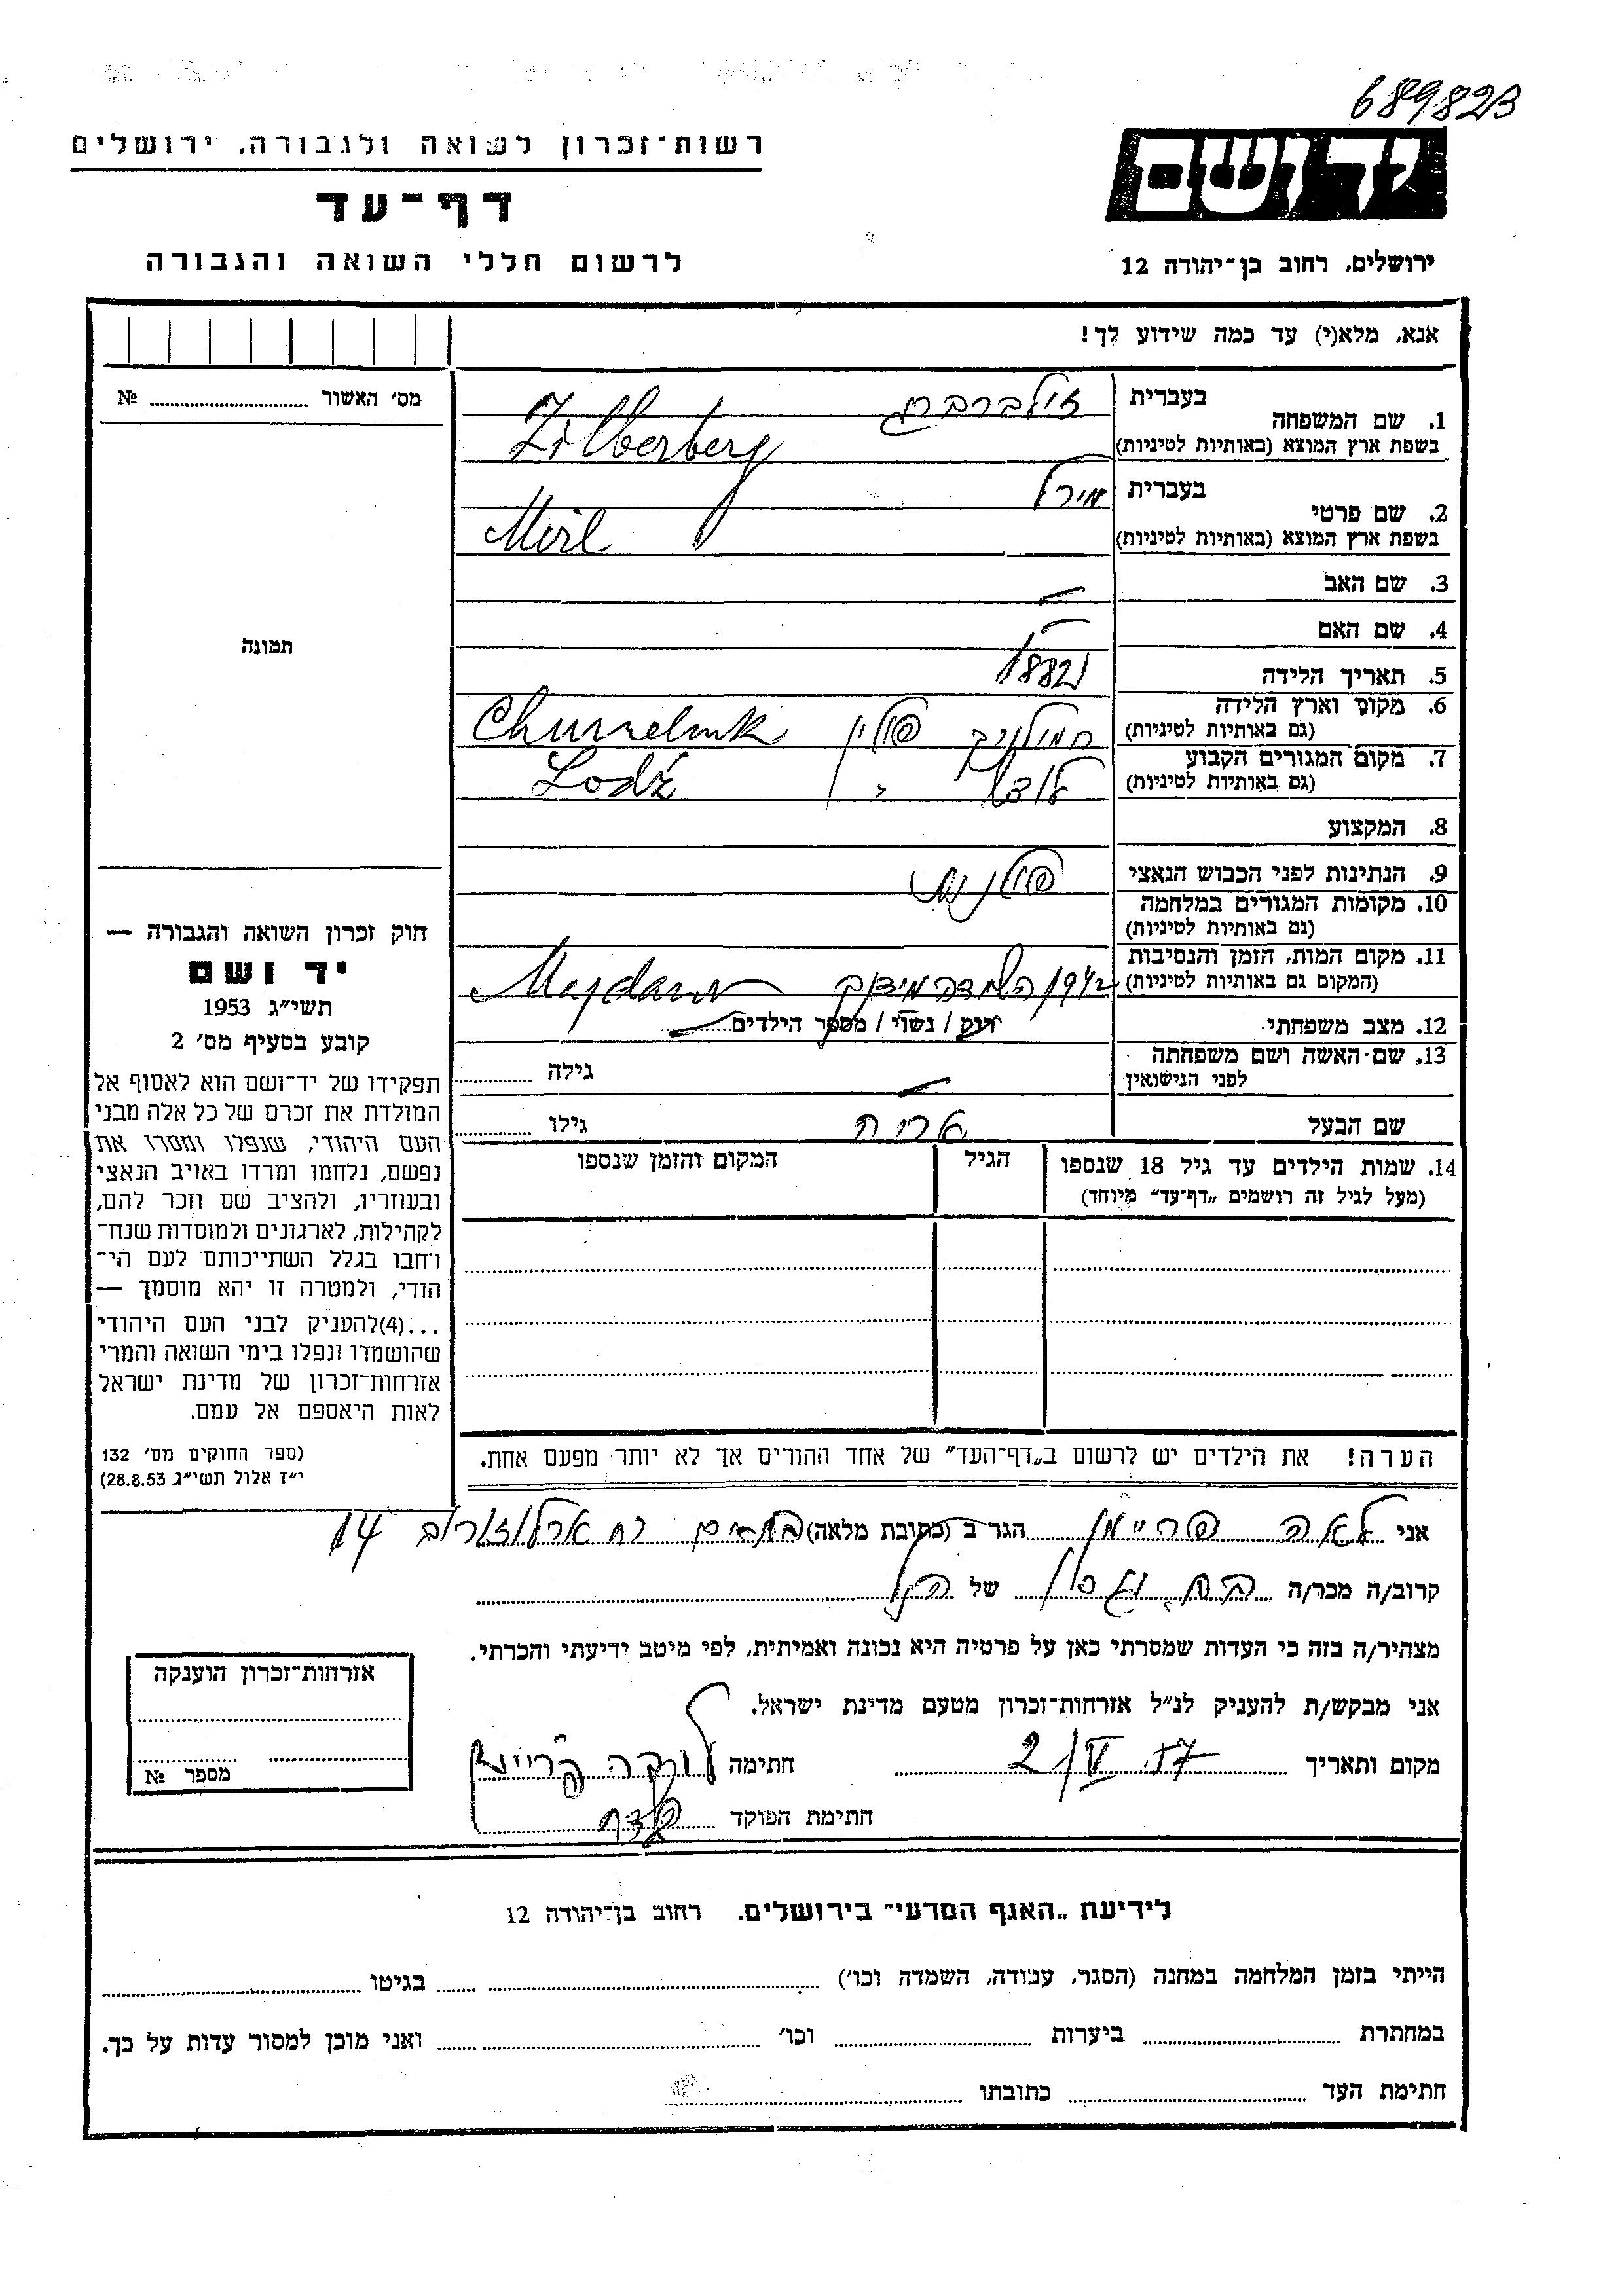 689823
יד ושם
רשות־זכרון לשואה ולגבורה, ירושלים
דף־עד
לרשום חללי השואה והגבורה
ירושלים, רחוב בן־יהודה 12
אנא, מלא(י) עד כמה שידוע לך!
מס׳ האשור № 
תמונה
1. שם המשפחה
בעברית זילברברג
בשפת ארץ המוצא (באותיות לטיניות) Zilberberg
2. שם פרטי
בעברית מירל
בשפת ארץ המוצא (באותיות לטיניות) Mirl
3. שם האב —
4. שם האם —
5. תאריך הלידה 1882
6. מקום וארץ הלידה פולין
(גם באותיות לטיניות)
7. מקום המגורים הקבוע לודז׳ "
(גם באותיות לטיניות) Lodź
8. המקצוע
9. הנתינות לפני הכבוש הנאצי פולנית
10. מקומות המגורים במלחמה
(גם באותיות לטיניות)
11. מקום המות, הזמן והנסיבות 1942 השמדה
(המקום גם באותיות לטיניות)
12. מצב משפחתי רווק / נשוי / מספר הילדים
13. שם האשה ושם משפחתה
לפני הנישואין — גילה
שם הבעל אריה גילו
14. שמות הילדים עד גיל 18 שנספו
(מעל לגיל זה רושמים „דף־עד” מיוחד)
הגיל
המקום והזמן שנספו
הערה! את הילדים יש לרשום ב„דף־העד” של אחד ההורים אך לא יותר מפעם אחת.
חוק זכרון השואה והגבורה —
יד ושם
תשי״ג 1953
קובע בסעיף מס׳ 2
תפקידו של יד־ושם הוא לאסוף אל
המולדת את זכרם של כל אלה מבני
העם היהודי, שנפלו ומסרו את
נפשם, נלחמו ומרדו באויב הנאצי
ובעוזריו, ולהציב שם וזכר להם,
לקהילות, לארגונים ולמוסדות שנח־
רחבו בגלל השתייכותם לעם הי־
הודי, ולמטרה זו יהא מוסמך —
...(4)להעניק לבני העם היהודי
שהושמדו ונפלו בימי השואה והמרי
אזרחות־זכרון של מדינת ישראל
לאות היאספם אל עמם.
(ספר החוקים מס׳ 132
י״ז אלול תשי״ג 28.8.53)
אני לאה פריימן הגר ב (כתובת מלאה) בת־ים רח ארלוזורוב 14
קרוב/ה מכר/ה של הנ״ל
מצהיר/ה בזה כי העדות שמסרתי כאן על פרטיה היא נכונה ואמיתית, לפי מיטב ידיעתי והכרתי.
אני מבקש/ת להעניק לנ״ל אזרחות־זכרון מטעם מדינת ישראל.
מקום ותאריך 2/V 57 חתימה
חתימת הפוקד
אזרחות־זכרון הוענקה
מספר №
לידיעת „האגף המדעי” בירושלים. רחוב בן־יהודה 12
הייתי בזמן המלחמה במחנה (הסגר, עבודה, השמדה וכו׳) בגיטו
במחתרת ביערות וכו׳ ואני מוכן למסור עדות על כך.
חתימת העד כתובתו